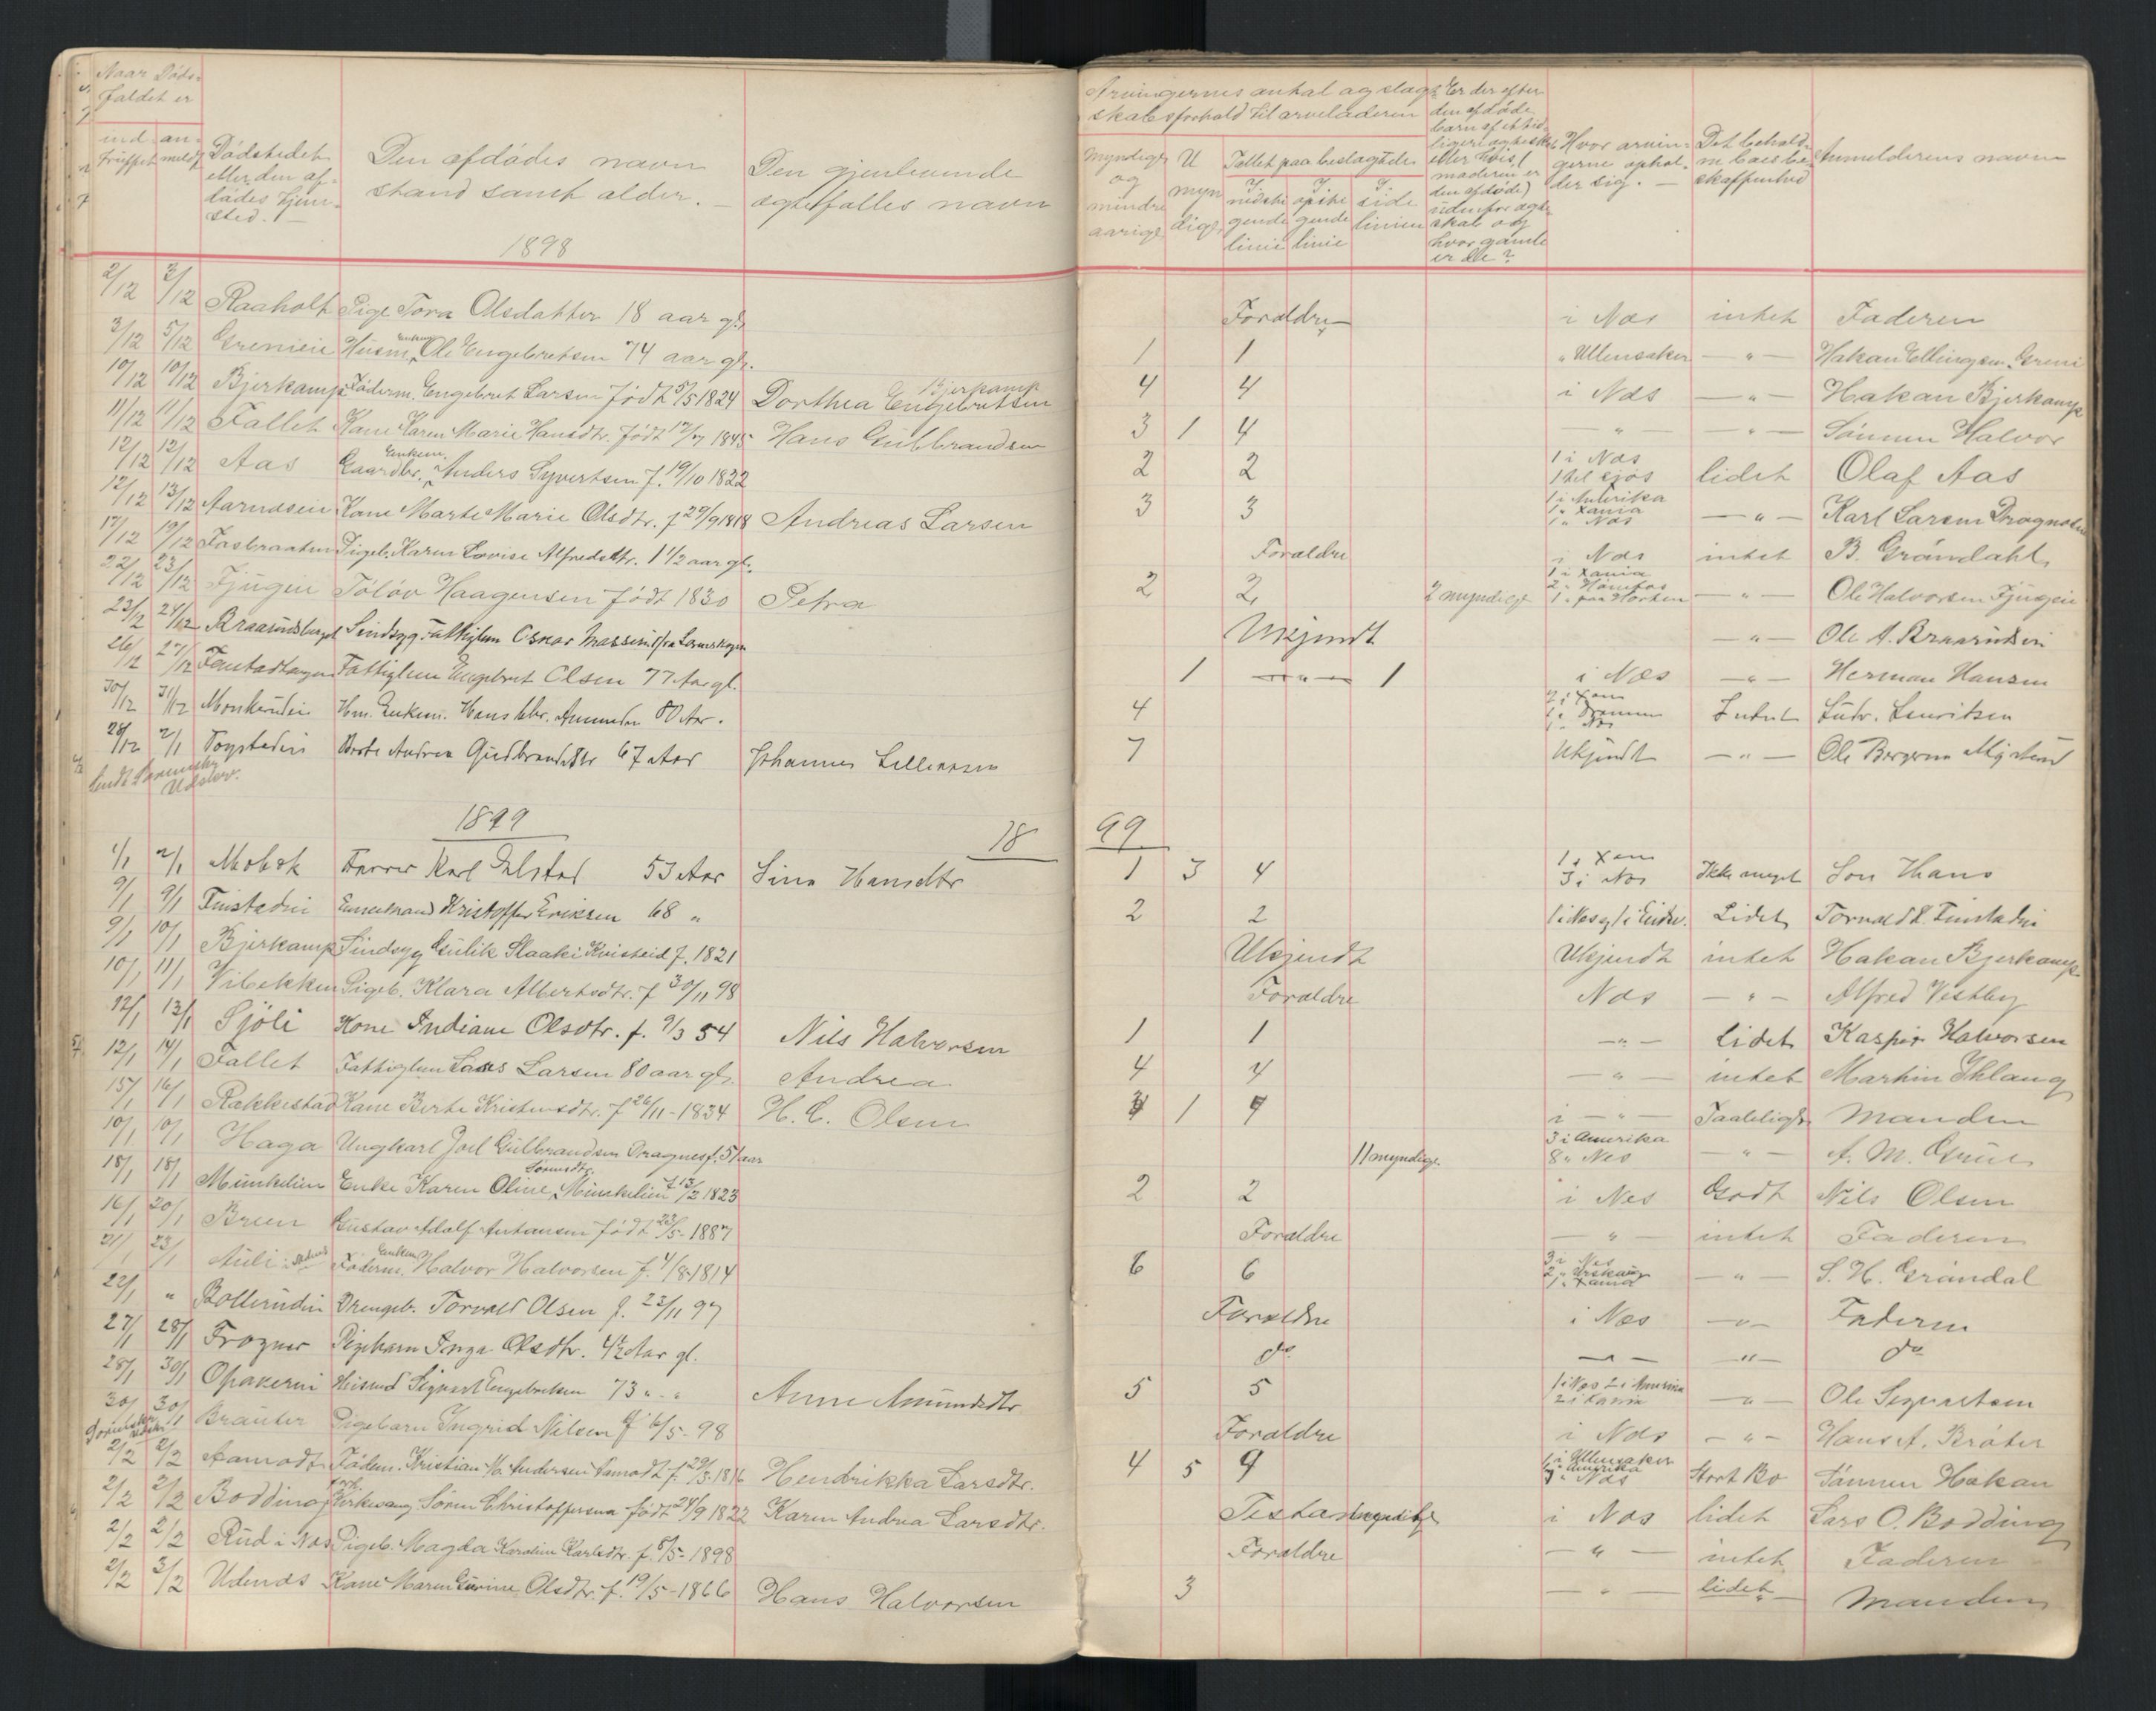 Naar Døds-
faldet er
ind-
truffet
an-
meldt
Dødstedet
eller den af-
dødes hjem-
sted. —
Den afdødes navn
stand samt alder. —
Den gjenlevende
ægtefælles navn
1898
Arvingernes antal og slægt-
skabsforhold til arveladeren
Myndige
og
mindre
aarige
U
myn
dige
Tallet paa beslægtede
I
nedsti
gende
linie
I
opsti
gende
linie
I
side
linien
Er der efter
den afdøde
barn af
eller hvis
moderen er
den afdøde
udenfor ægte
skab og
hvor gamle
er de?
Hvor arvin-
gerne ophol-
der sig. —
Det behold-
ne boes be-
skaffenhed
Anmelderens navn
2/12 3/12 Raaholt Pige Tora Olsdatter 18 aar gl. Forældre i Næs intet Faderen
3/12 5/12 Grenieie Husm. Enkem. Ole Engebretsen 74 aar gl. 1 1 " Ullensaker — " — Hakan Ellingsen Greni
10/12 10/12 Bjerkamp Føderm. Engebret Larsen født 5/5 1824 Dorthea Engebretsen Bjerkamp 4 4 i Næs — " — Hakan Bjerkamp
11/12 11/12 Fallet Kone Karen Marie Hansdtr. født 12/7 1845 Hans Gulbrandsen 3 1 4 — " — — " — Sønnen Halvor
12/12 12/12 Aas Gaardbr. Enkem. Anders Syvertsen f. 19/10 1822 2 2 1 i Næs lidet Olaf Aas
12/12 13/12 Aarnæseie Kone Marte Marie Olsdtr. f 29/9 1818 Andreas Larsen 3 3 1 i Amerika 1 " Xania 1 " Næs — " — Karl Larsen Dragnæs
17/12 19/12 Fosbraaten Pigeb. Karen Lovise Alfredsdtr. 1 1/2 aar gl. Forældre i Næs intet B. Grøndahl
22/12 23/12 Fjugeie Tøløv Haagensen født 1830 Petra 2 2 2 myndige 1 i Xania 2 i Hønefos 1 " paa Horten — " — Ole Halvorsen Fjugeie
23/12 24/12 Sindsyg. Fattiglem Oskar fra Lørenskogen Ukjendt — " — Ole A.
26/12 27/12 Fenstadhagen Fattiglem Engebret Olsen 77 Aar gl. 1 — " — 1 i Næs — " — Herman Hansen
30/12 31/12 Monkerudeie Hm. Enkem. Hans Chr. 80 Aar. 4 2 i Xania 1 " Drammen 1 " Næs Intet Lauritsen
28/12 2/1 Togstadeie Berte Andrea Gudbrandsdtr 67 Aar Johannes 7 Ukjendt — " — Ole
1899
18 99
1/1 2/1 Mobæk Karl 53 Aar Sina Hansdtr 1 3 4 1 i Xania 3 i Næs Ikke meget Søn Hans
9/1 9/1 Finstadeie Enkemand Kristoffer Eriksen 68 " 2 2 1 i Næs og 1 i Eidsv. Lidet Torvald K. Finstadeie
9/1 10/1 Bjerkamp Sindsyg Gulik Slaaki Kviteseid f. 1821 Ukjendt Ukjendt intet Hakan Bjerkamp
10/1 11/1 Vibekken Pigeb. Klara Albertsdtr. f 30/11 98 Forældre Næs — " — Alfred Vestby
12/1 13/1 Sjøli Kone Indiane Olsdtr. f. 9/3 54 Nils Halvorsen 1 1 — " — lidet Kasper Halvorsen
12/1 14/1 Fallet Fattiglem Lars Larsen 80 aar gl. Andrea 4 4 — " — intet Martin Ihlang
15/1 16/1 Rakkestad Kone Berte Kristensdtr. f 26/11 - 1834 H. C. Olsen 1 i — " — Taaleligt Manden
10/1 10/1 Haga Ungkarl Joel Gulbrandsen Dragnes f. 51 aar 11 myndige 3 i Amerika 8 " Nes — " — A. M.
18/1 18/1 Munkelien Enke Karen Oline Sørensdtr. Munkelien f 13/2 1823 2 2 i Nes Godt Nils Olsen
16/1 20/1 Breen Gustav Adolf Antonsen født 23/5 - 1887 Forældre — " — intet Faderen
21/1 23/1 Auli Føderm. Enkem. Halvor Halvorsen f. 4/8 - 1814 6 6 3 i Nes 2 " Urskoug 1 " Xania — " — S. H. Grøndal
22/1 " Bollerudeie Drengeb. Torvald Olsen f. 23/11 97 Forældre i Næs — " — Faderen
27/1 28/1 Frogner Pigebarn Inga Olsdtr. 4 1/2 Aar gl. do — " — — " — do
28/1 30/1 Opakereie Husmd Sigvart Engebretsen 73 " - " Anne Amundsdtr 5 5 1 i Næs 2 i Amerika 2 i Xania — " — Ole Sigvartsen
30/1 30/1 Brauter Pigebarn Ingrid Nilsen f 6/5 - 98 Forældre i Næs — " — Hans A. Bråter
2/2 2/2 Aamodt Føderm. Kristian Andersen Aamodt f. 29/5 - 1816 Hendrikka Larsdtr. 4 5 9 1 i Ullensaker Amerika Næs Stort Bo Sønnen Hakan
2/2 2/2 Bodding forh. Kirkesang. Søren Christoffersen født 24/9 1822 Karen Andrea Larsdtr. i Næs lidet Lars O. Bodding
2/2 2/2 Rud i Næs Pigeb. Magda Karoline Karlsdtr. f. 5/5 - 1898 Forældre — " — intet Faderen
2/2 3/2 Udenæs Kone Maren Gurine Olsdtr. f. 19/5 - 1866 Hans Halvorsen 3 — " — lidet Manden